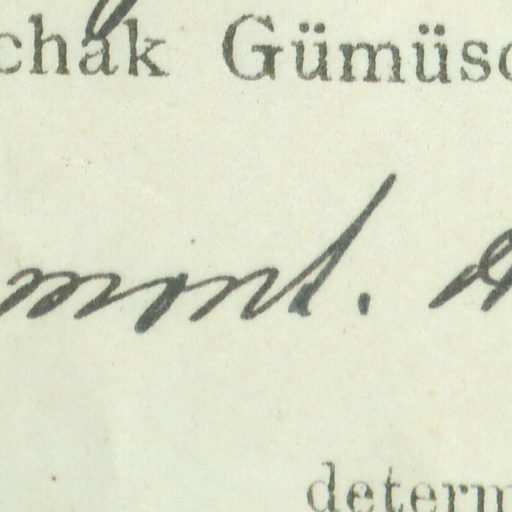 chak Gümüsc
mont. d
determ